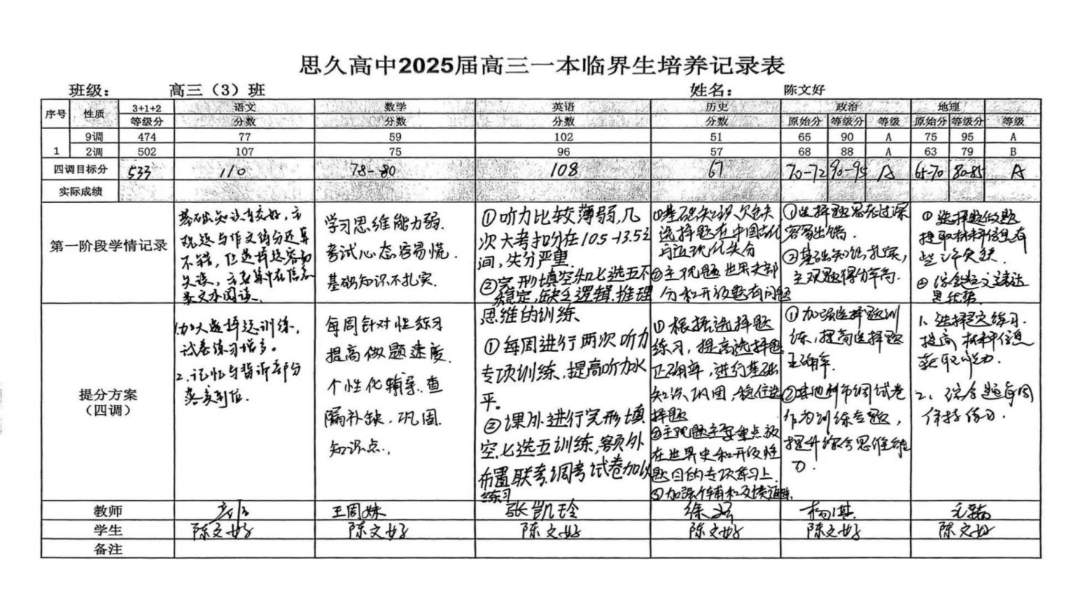 思久高中2025届高三一本临界生培养记录表
班级： 高三（3）班 姓名： 陈文好
序号 性质 3+1+2 语文 数学 英语 历史 政治 地理
等级分 分数 分数 分数 分数 原始分 等级分 等级 原始分 等级分 等级
9调 474 77 59 102 51 65 90 A 75 95 A
1 2调 502 107 75 96 57 68 88 A 63 79 B
四调目标分 533 110 78-80 108 67 70-72 90-95 A 65-70 80-85 A
实际成绩
第一阶段学情记录
学习思维能力弱.
考试心态容易慌.
基础知识不扎实.
①听力比较薄弱,几
次大考扣分在10.5-13.5之
间,失分严重.
②完形填空和七选五不
稳定,缺乏逻辑.推理
思维的训练.
①基础知识欠缺
选择题在中国古代
与近现代失分
②主观题世界史部
分和开放题有问题
①选择题思考过深
容易出错.
②基础知识扎实,
主观题得分率高.
①选择题做题
提取材料信息有
些许欠缺.
提分方案
（四调）
1.加大选择题训练,
试卷练习增多.
2.记忆与背诵部分
落实到位.
每周针对性练习
提高做题速度.
个性化辅导.查
漏补缺.巩固
知识点.
①每周进行两次听力
专项训练.提高听力水
平.
②课外进行完形填
空七选五训练,额外
布置联考调考试卷加以
练习
①根据选择题
练习,提高选择题
正确率,进行基础
知识巩固,稳住选
择题
②主观题主要重点放
在世界史和开放性
题目的专项练习上.
①加强选择题训
练,提高选择题
正确率.
②其他新市调试卷
作为训练专题,
提升综合思维能
力.
1.选择题练习.
提高材料信息
获取能力.
2.综合题每周
保持练习.
教师 王周姝 张凯玲
学生 陈文好 陈文好 陈文好 陈文好 陈文好 陈文好
备注